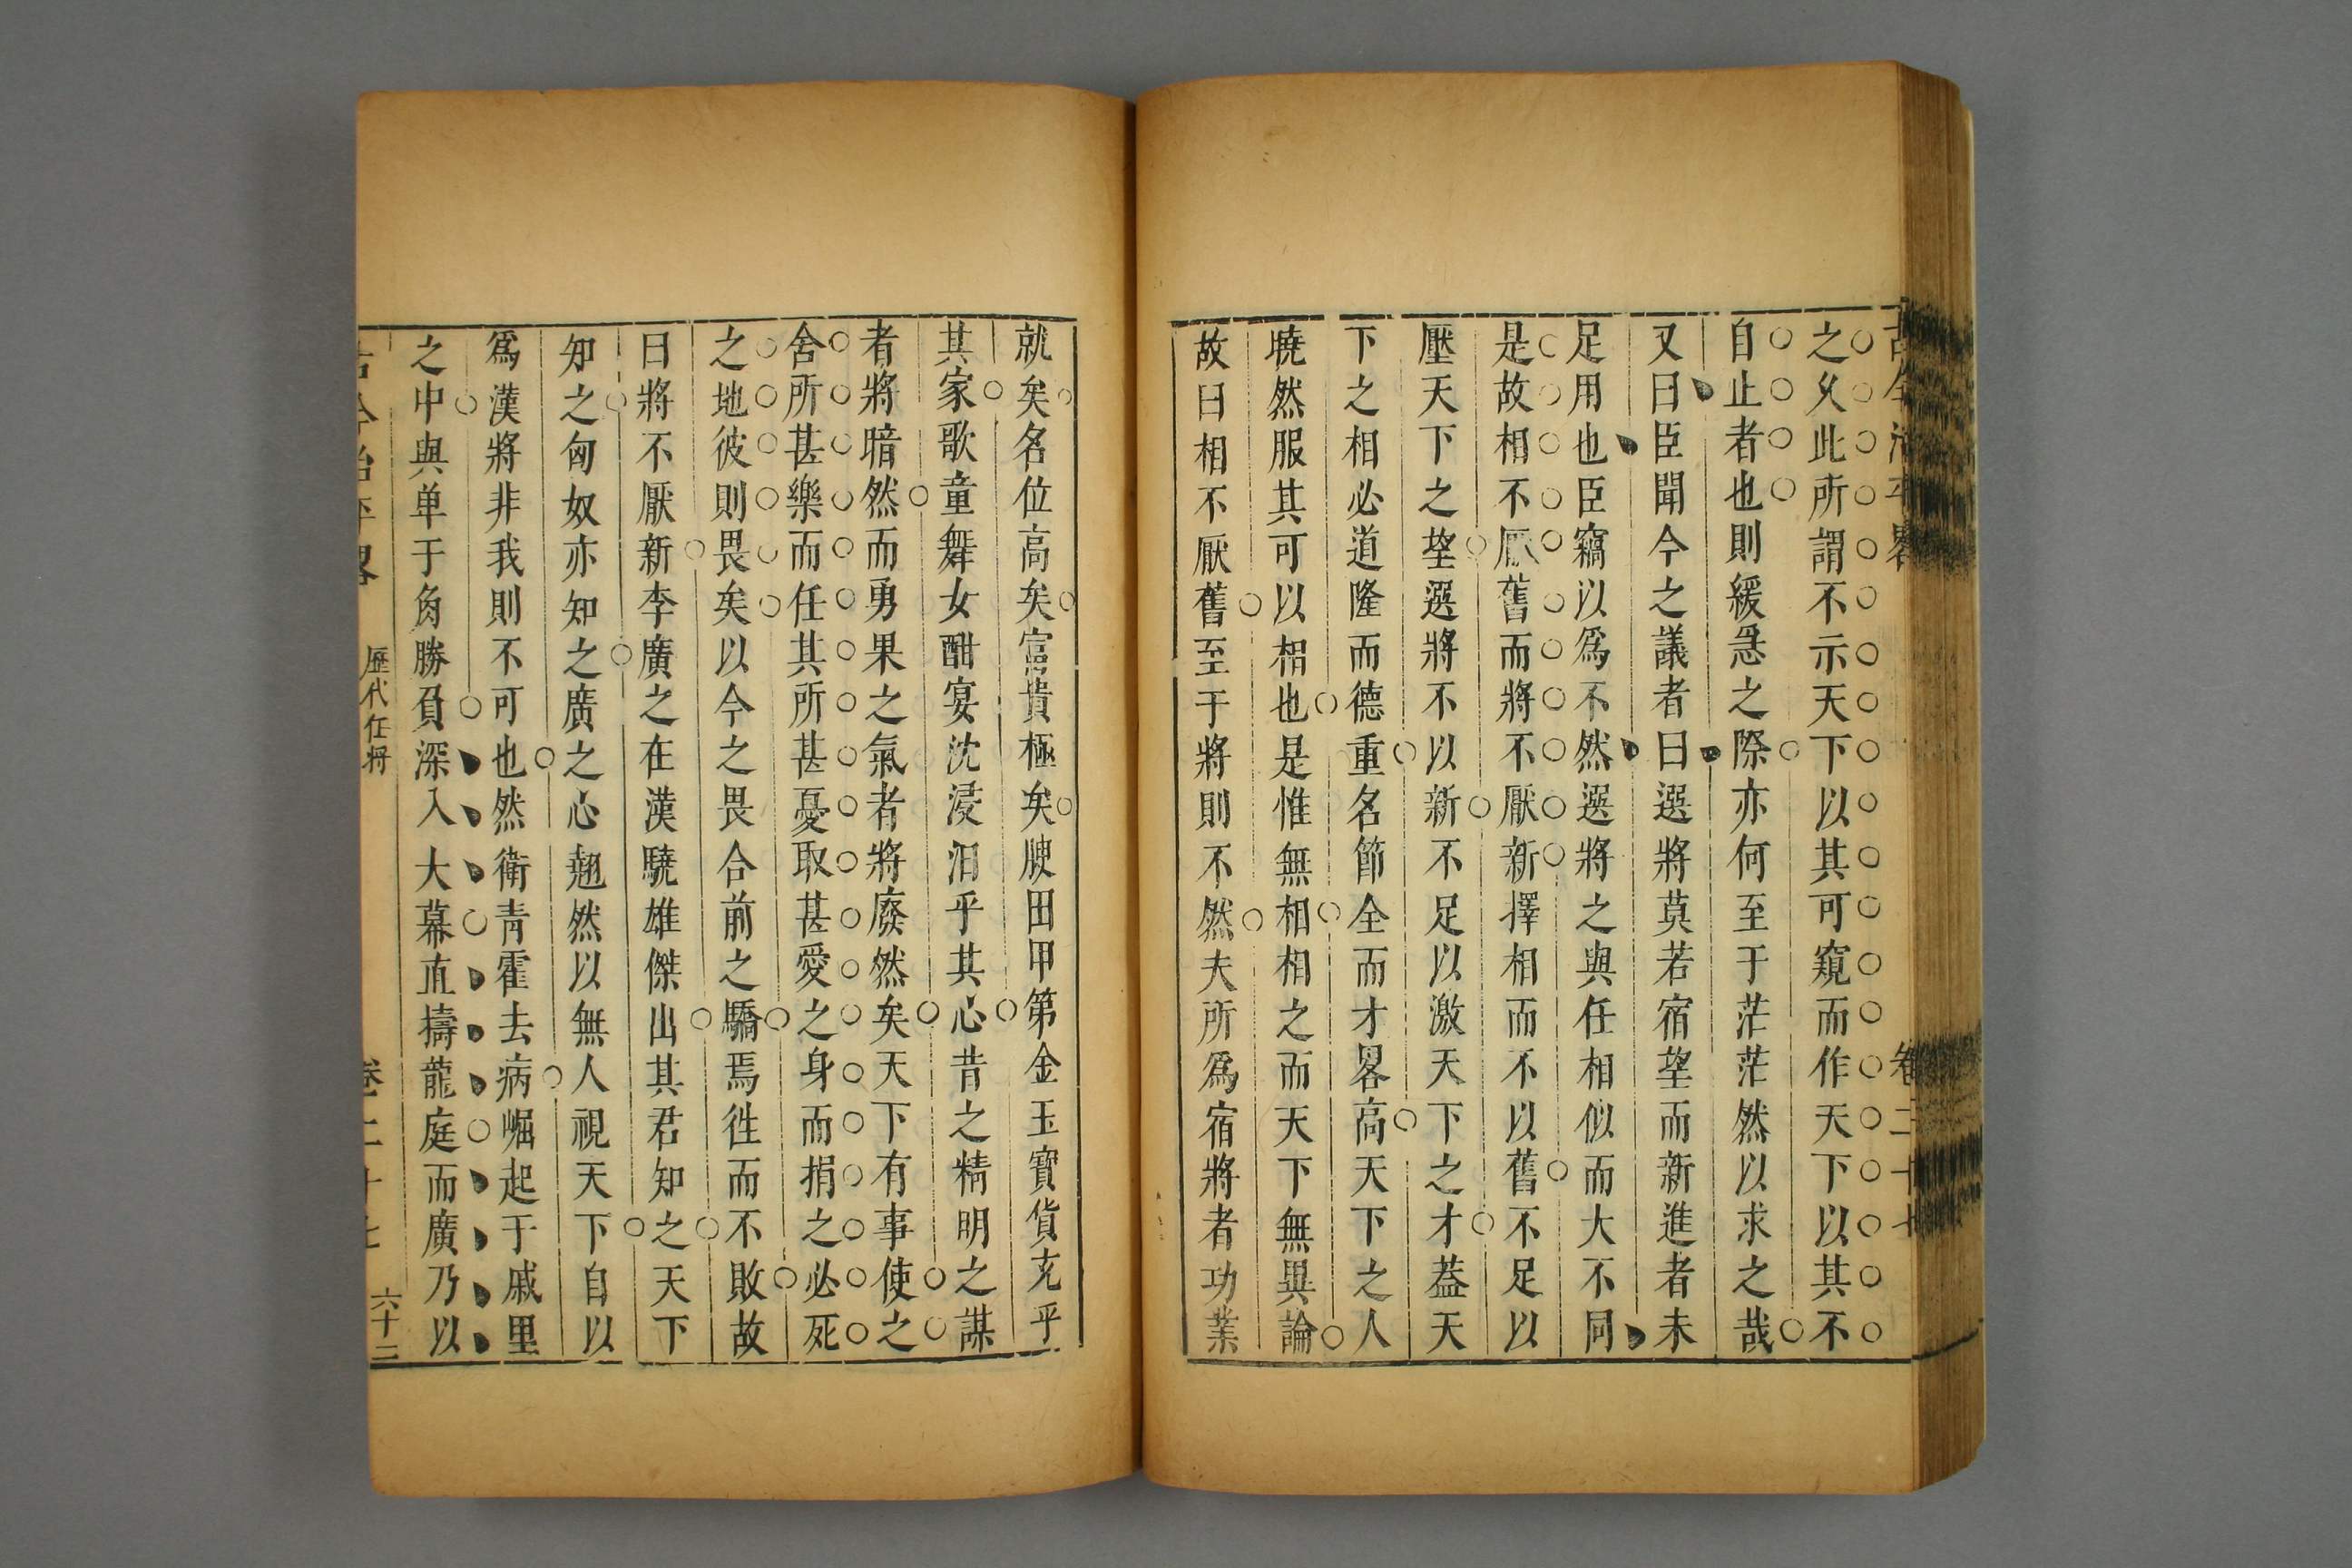 之久此所謂不示天下以其可窺而作天下以其不
自止者也則緩急之際亦何至于茫茫然以求之哉
又曰臣聞今之議者曰選將莫若宿望而新進者未
足用也臣竊以爲不然選將之與任相似而大不同
是故相不厭舊而將不厭新擇相而不以舊不足以
壓天下之望選將不以新不足以激天下之才葢天
下之相必道隆而德重名節全而才畧高天下之人
曉然服其可以相也是惟無相相之而天下無異論
故曰相不厭舊至于將則不然夫所爲宿將者功業
就矣名位高矣富貴極矣腴田甲第金玉寶貨充乎
其家歌童舞女酣宴沈浸汨乎其心昔之精明之謀
者將暗然而勇果之氣者將廢然矣天下有事使之
舍所甚樂而任其所甚憂取甚愛之身而捐之必死
之地彼則畏矣以今之畏合前之驕焉徃而不敗故
曰將不厭新李廣之在漢驍雄傑出其君知之天下
知之匈奴亦知之廣之心翹然以無人視天下自以
爲漢將非我則不可也然衛青霍去病崛起于戚里
之中與单于角勝負深入大幕直擣龍庭而廣乃以
古今治平畧 歷代任將 卷二十七 六十二